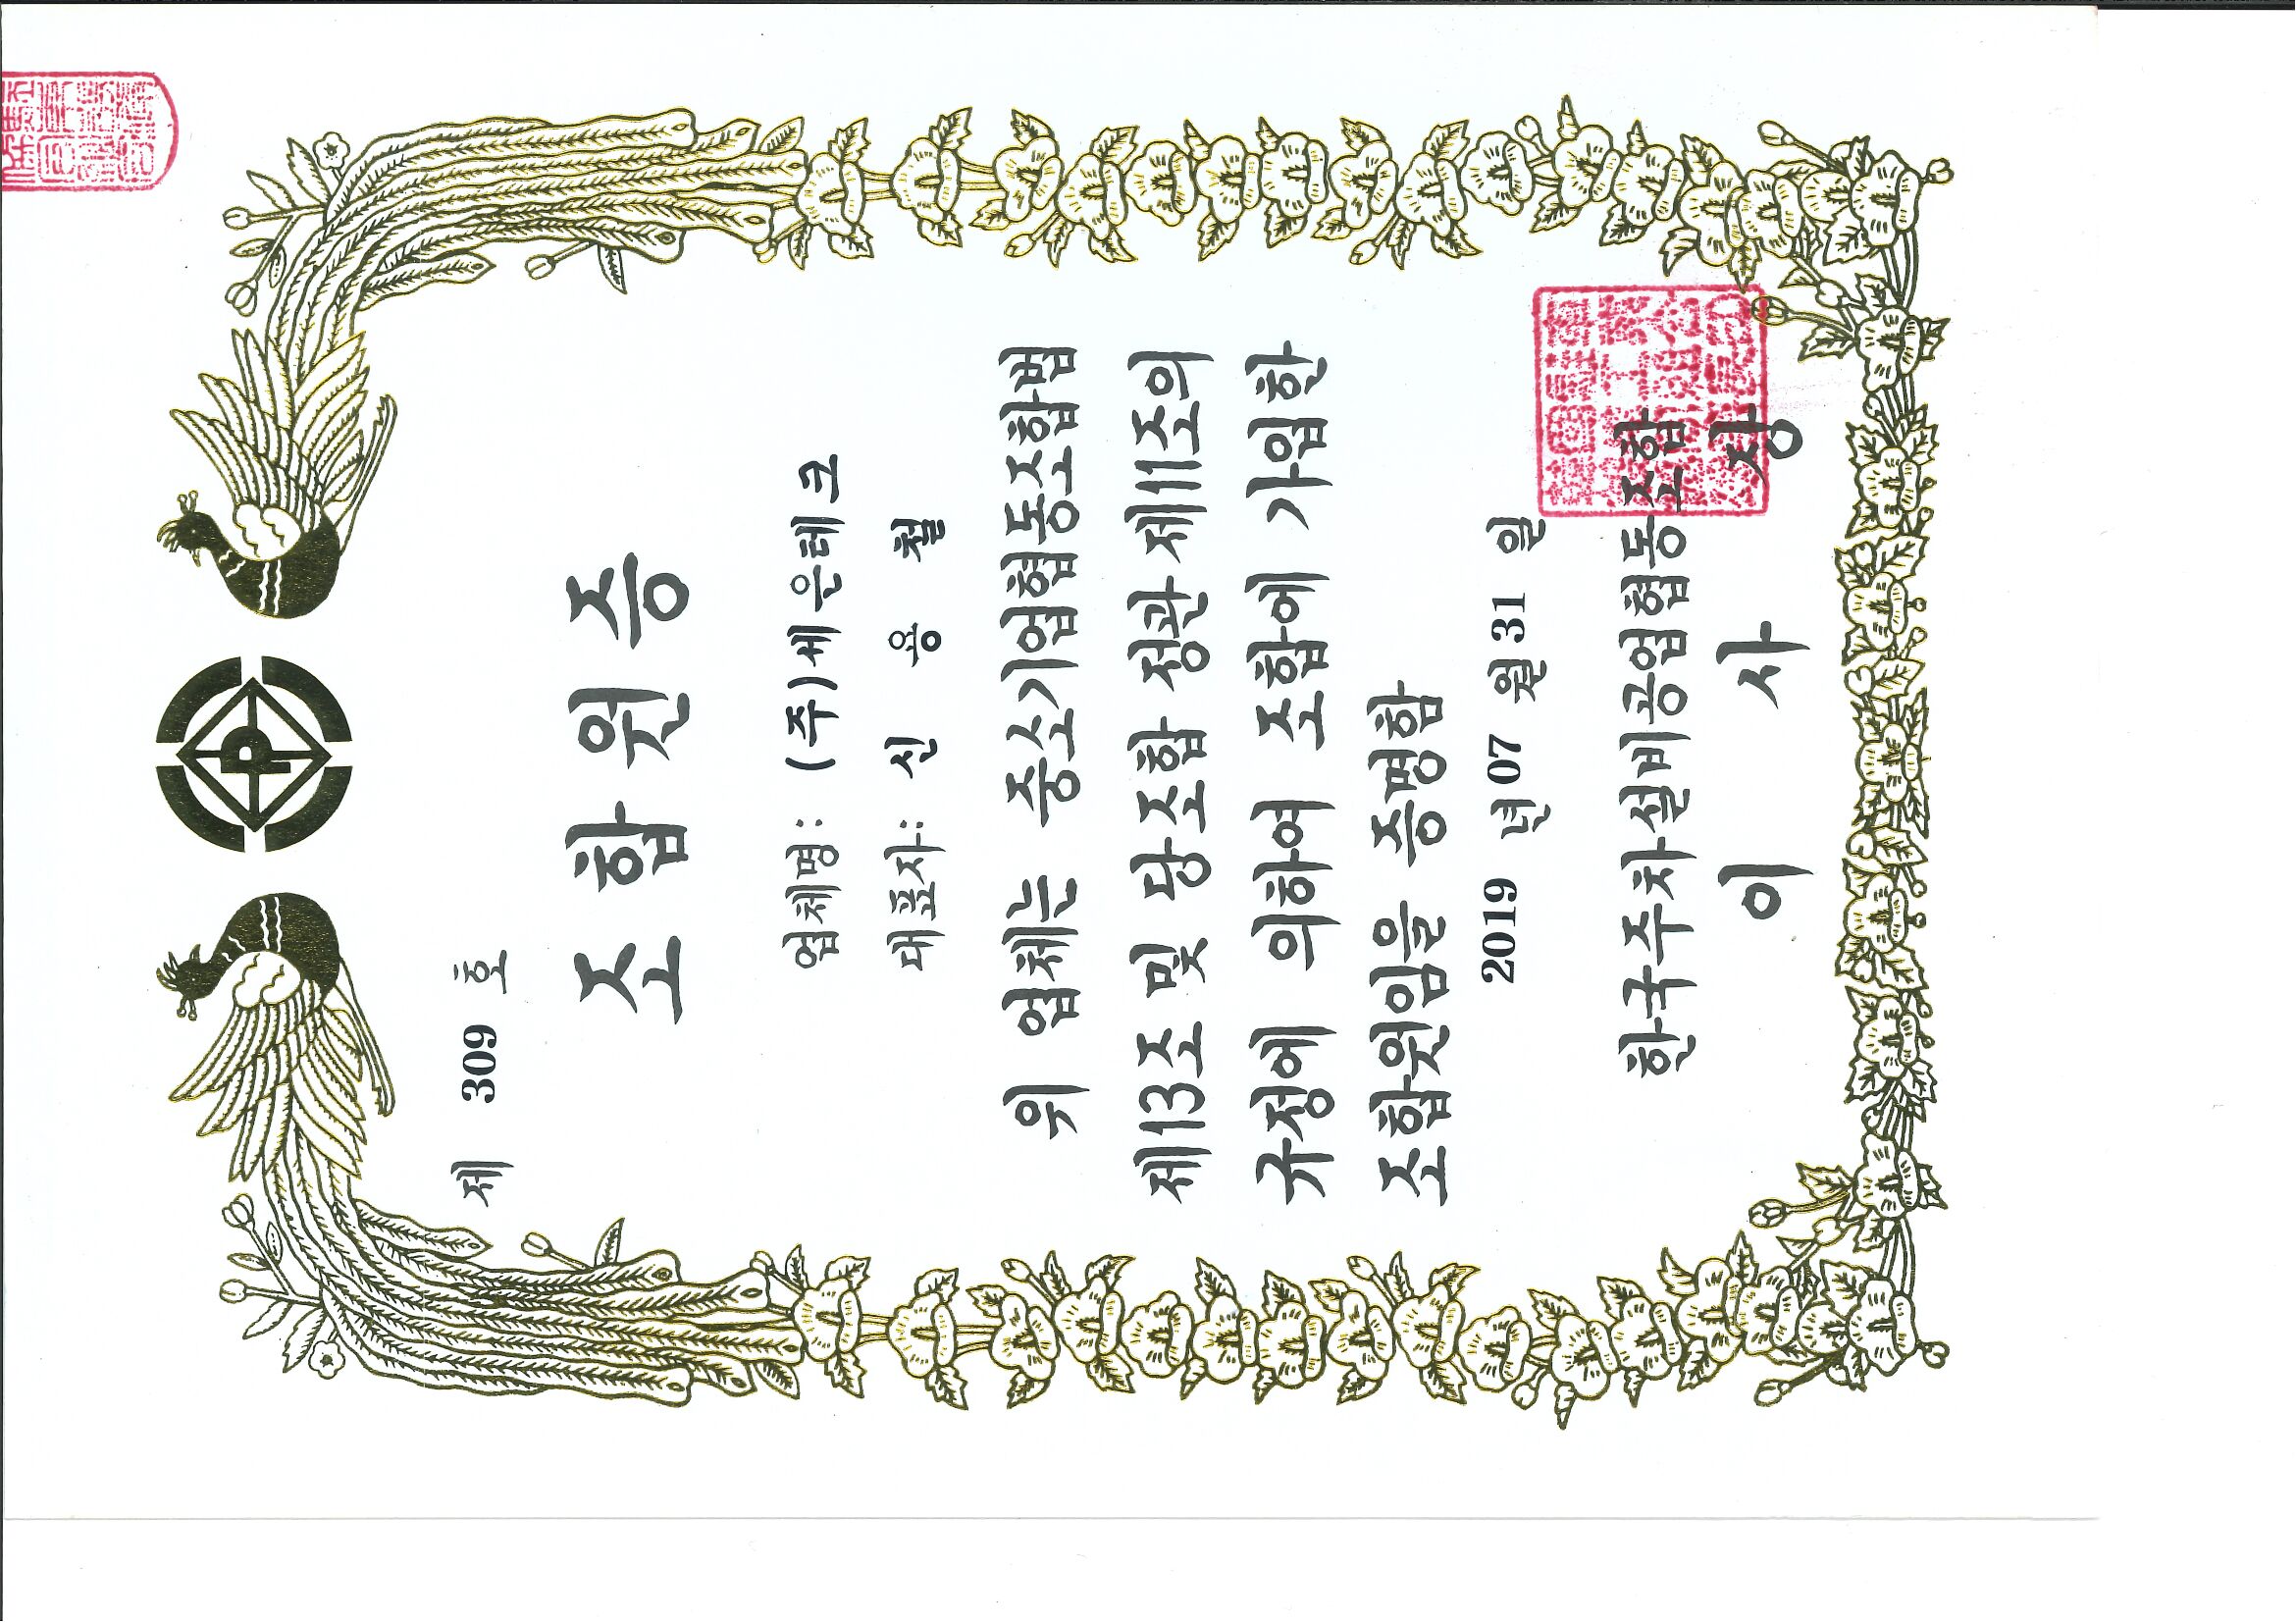 제 309 호
조 합 원 증
업체명: (주)세은테크
대표자: 신 용 철
위 업체는 중소기업협동조합법
제13조 및 당조합 정관 제11조의
규정에 의하여 조합에 가입한
조합원임을 증명함
2019 년 07 월 31 일
한국주차설비공업협동조합
이 사 장